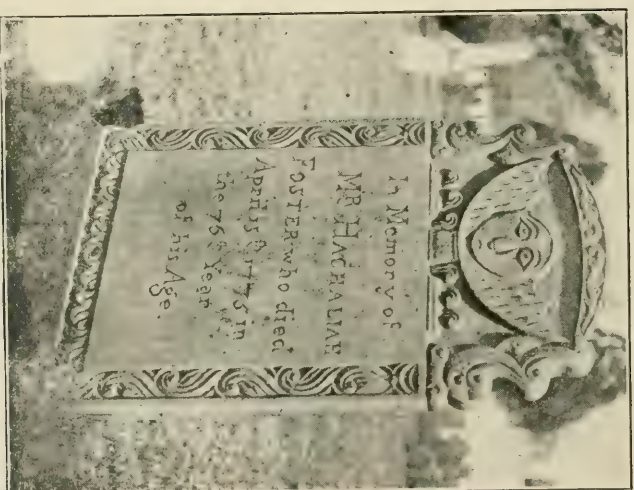 In Memory of
MR. HACHALIAH
FOSTER who died
April 1775 in
the Year
of his Age.